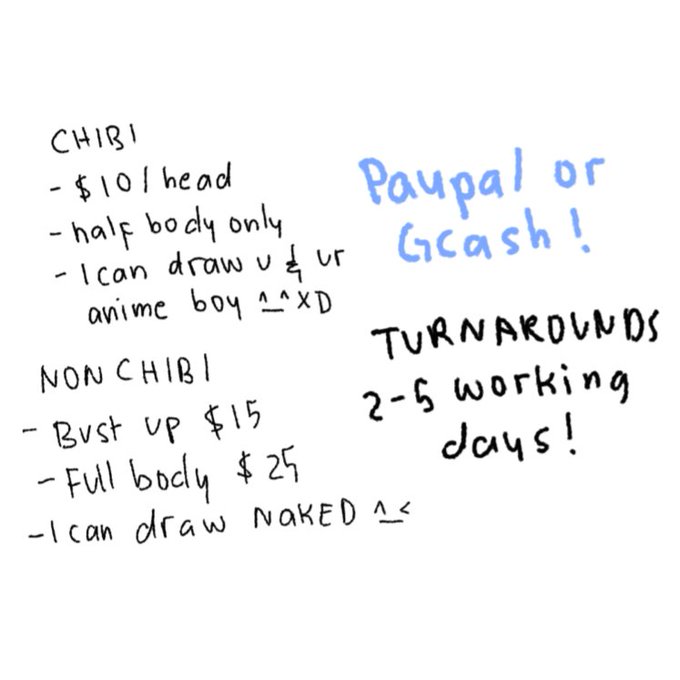 CHIBI
- $10/head
- half body only
- I can draw u & ur
anime boy ^_^ XD
NON CHIBI
- Bust up $15
- Full body $25
- I can draw NAKED ^_<
Paypal or
Gcash!
TURNAROUNDS
2-5 working
days!